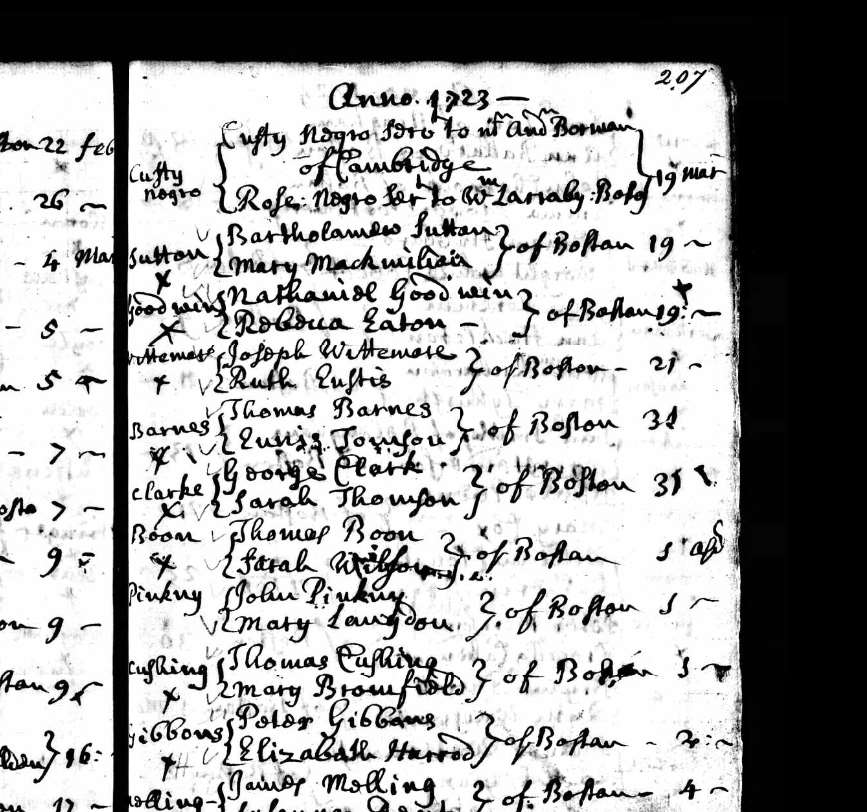 207
Anno. 1723 —
22 feb
Custy Negro Ser^t to m^r And^w Borman
of Cambridge
Custy
negro
19 mar
26 ~
Rose: Negro Ser^t to W^m Larraby: Bosto
Bartholamew Sutton
Sutton
of Boston 19 ~
- 4 Mar
Mary Mackmilian
x
Nathaniel Goodwin
Goodwin
of Boston 19: ~
- 5 ~
Rebecca Eaton —
x
Joseph Wittemore
Wittemore
of Boston - 21 ~
5
Ruth Eustis
x
Thomas Barnes
Barnes
of Boston 31
- 7 ~
Eunis Tomson
x
George Clark
Clarke
of Boston 31
7 ~
Sarah Thomson
x
Thomas Boon
Boon
of Boston 1 apr
9
Sarah Wilson
x
John Pinkny
Pinkny
of Boston 1 ~
9 -
Mary Langdon
Thomas Cushing
Cushing
of Boston 1 ~
9
Mary Bromfield
x
Peter Gibbons
Gibbons
of Boston - 2: ~
16:
Elizabath Harrod
x
James Melling
Melling
of Boston - 4 ~